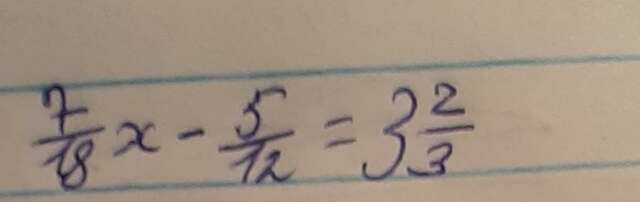 7/18 x - 5/12 = 3 2/3